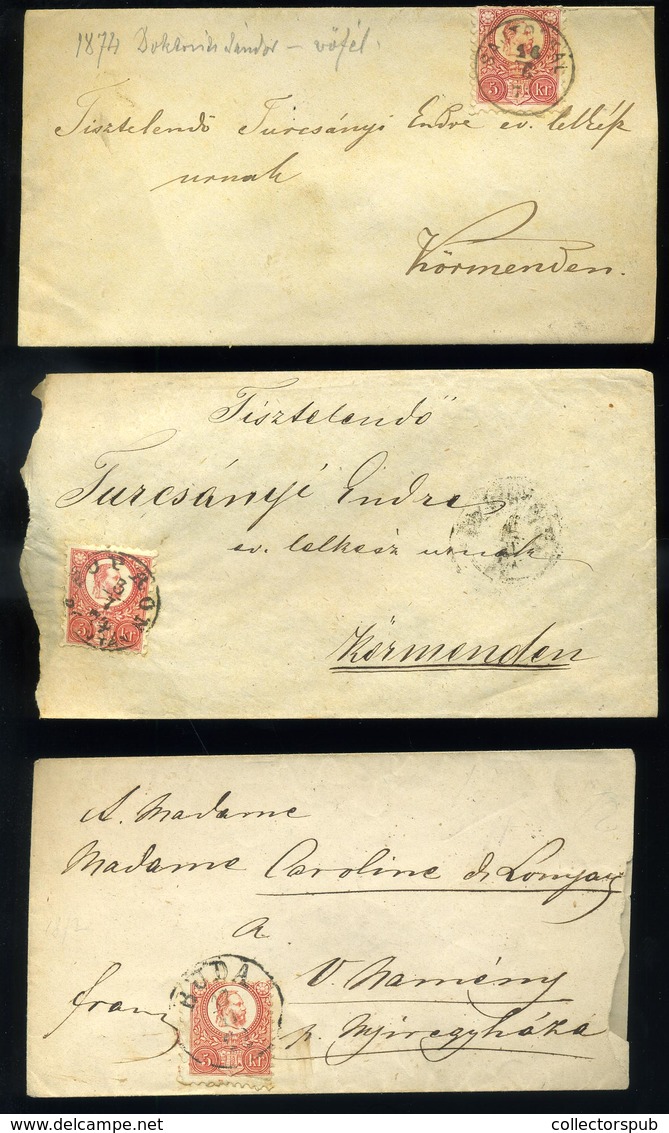 1874 Doktorich Sándor – vőfél.
5 Kr
Tisztelendő Turcsányi Endre ev. lelkész
urnak
Körmenden.
Tisztelendő
Turcsányi Endre
ev. lelkész urnak
13
7
5 Kr
Körmenden
A. Madame
Madame Caroline de Lonyay
a
BUDA
V. Namény
franz
p. Nyiregyháza
5 Kr
www.delcampe.net
collectorspub